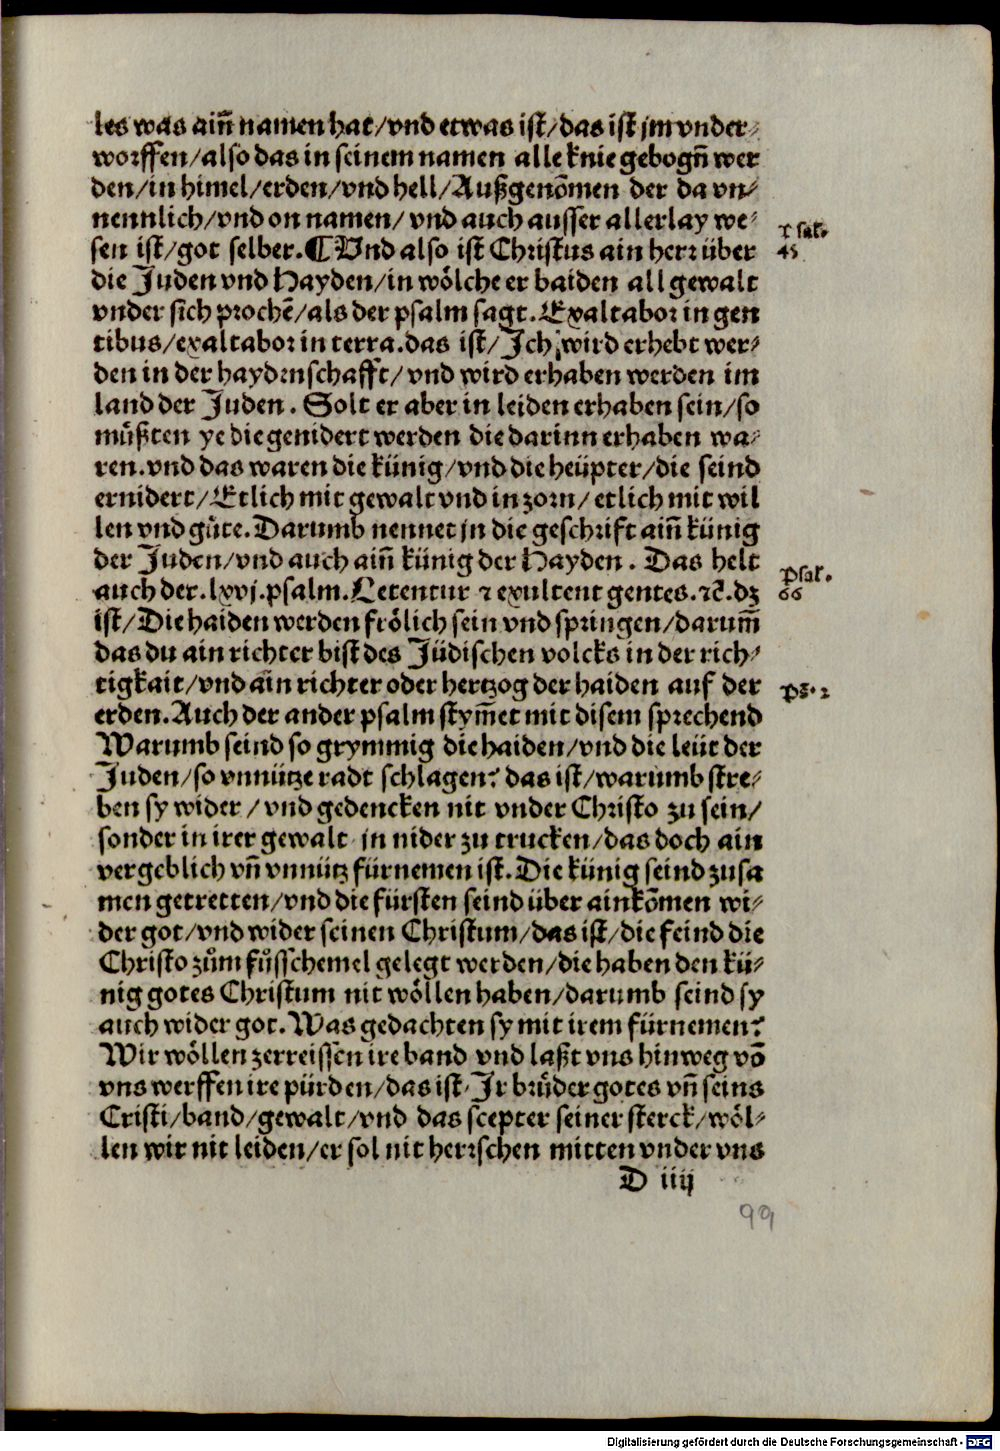 les was aiñ namen hat/vnd etwas ist/das ist jm vnder⸗
worffen/also das in seinem namen alle knie gebogñ wer
den/in himel/erden/vnd hell/Außgenõmen der da vn⸗
nennlich/vnd on namen/ vnd auch ausser allerlay we⸗
sen ist/got selber.¶Vnd also ist Christus ain herr über
psal.
45
die Juden vnd Hayden/in wölche er baiden all gewalt
vnder sich prochẽ/als der psalm sagt.Exaltabor in gen
tibus/exaltabor in terra.das ist/Jch wird erhebt wer⸗
den in der haydenschafft/vnd wird erhaben werden im
land der Juden. Solt er aber in leiden erhaben sein/so
müßten ye die genidert werden die darinn erhaben wa⸗
ren.vnd das waren die künig/vnd die heüpter/die seind
ernidert/Etlich mit gewalt vnd in zorn/etlich mit wil
len vnd güte.Darumb nennet jn die geschrift aiñ künig
der Juden/vnd auch aiñ künig der Hayden. Das helt
psal.
66
auch der.lxvj.psalm.Letentur ⁊ exultent gentes.⁊c̃.dz
ist/Die haiden werden frölich sein vnd springen/darum̃
das du ain richter bist des Jüdischen volcks in der rich⸗
tigkait/vnd ain richter oder hertzog der haiden auf der
ps. 2
erden.Auch der ander psalm stym̃et mit disem sprechend
Warumb seind so grymmig die haiden/vnd die leüt der
Juden/so vnnütze radt schlagen? das ist/warumb stre⸗
ben sy wider/ vnd gedencken nit vnder Christo zu sein/
sonder in irer gewalt jn nider zu trucken/das doch ain
vergeblich vñ vnnütz fürnemen ist.Die künig seind zusa
men getretten/vnd die fürsten seind über ainkõmen wi⸗
der got/vnd wider seinen Christum/das ist/die feind die
Christo zům fůsschemel gelegt werden/die haben den kü⸗
nig gotes Christum nit wöllen haben/darumb seind sy
auch wider got.Was gedachten sy mit irem fürnemen?
Wir wöllen zerreissen ire band vnd laßt vns hinweg võ
vns werffen ire pürden/das ist Jr brüder gotes vñ seins
Cristi/band/gewalt/vnd das scepter seiner sterck/wöl⸗
len wir nit leiden/er sol nit herrschen mitten vnder vns
D iiij
99
Digitalisierung gefördert durch die Deutsche Forschungsgemeinschaft - DFG